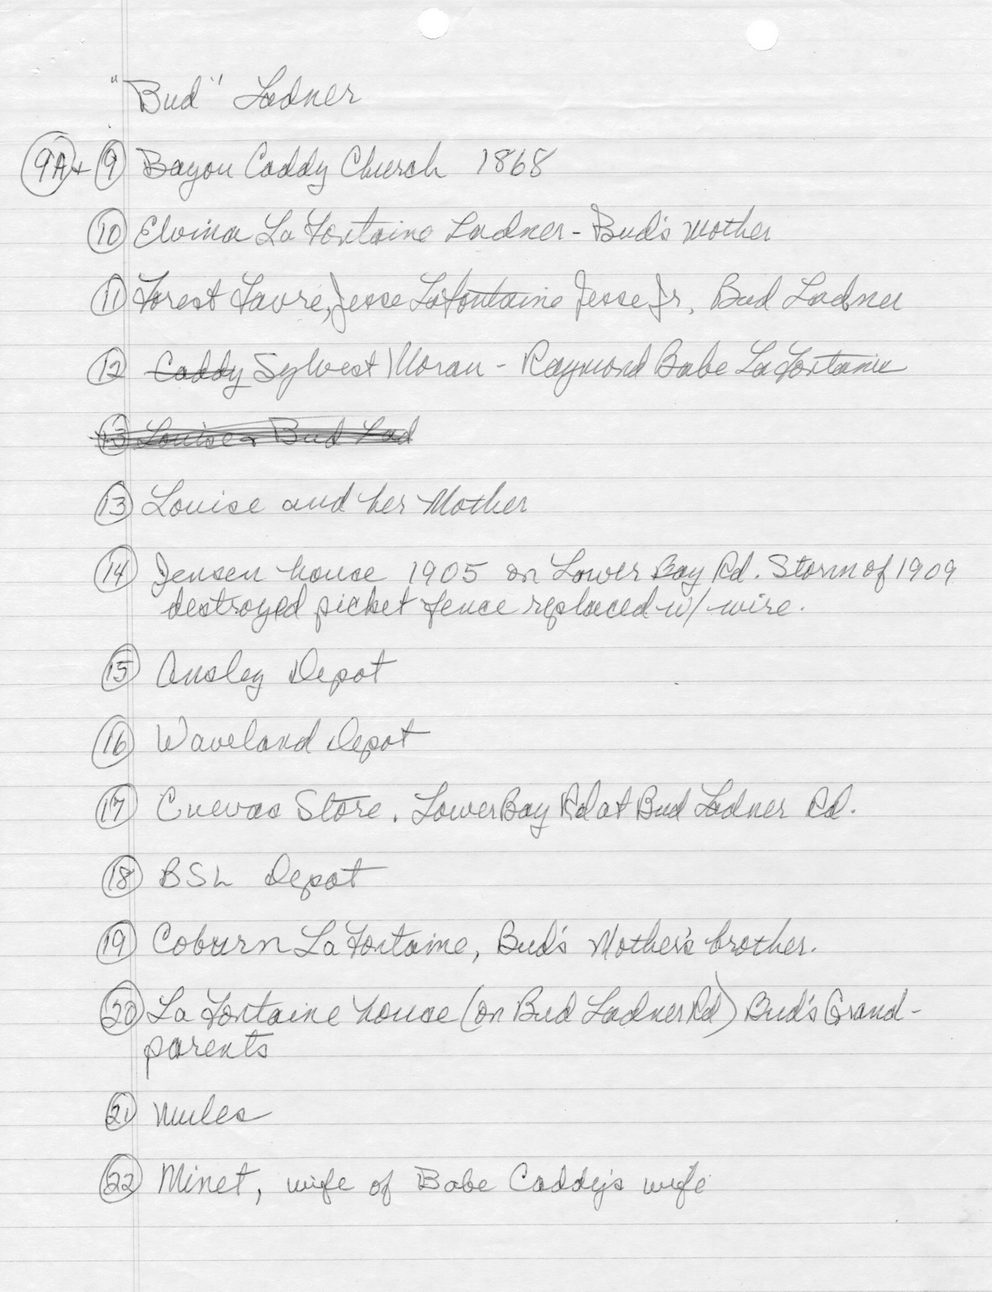 "Bud" Ladner
9A + 9 Bayou Caddy Church 1868
10 Elvina La Fontaine Ladner - Bud's mother
11 Forest Favre, Jesse LaFontaine Jesse Jr. Bud Ladner
12 Caddy Sylvest Moran - Raymond Babe La Fontaine
13 Louise & Bud Lad
13 Louise and her Mother
14 Jensen house 1905 on Lower Bay Rd. Storm of 1909
destroyed picket fence replaced w/ wire.
15 Ansley Depot
16 Waveland Depot
17 Cuevas Store. Lower Bay Rd at Bud Ladner Rd.
18 BSL Depot
19 Coburn La Fontaine, Bud's Mother's brother.
20 La Fontaine house (on Bud Ladner Rd) Bud's Grand-
parents
21 Mules
22 Minet, wife of Babe Caddy's wife